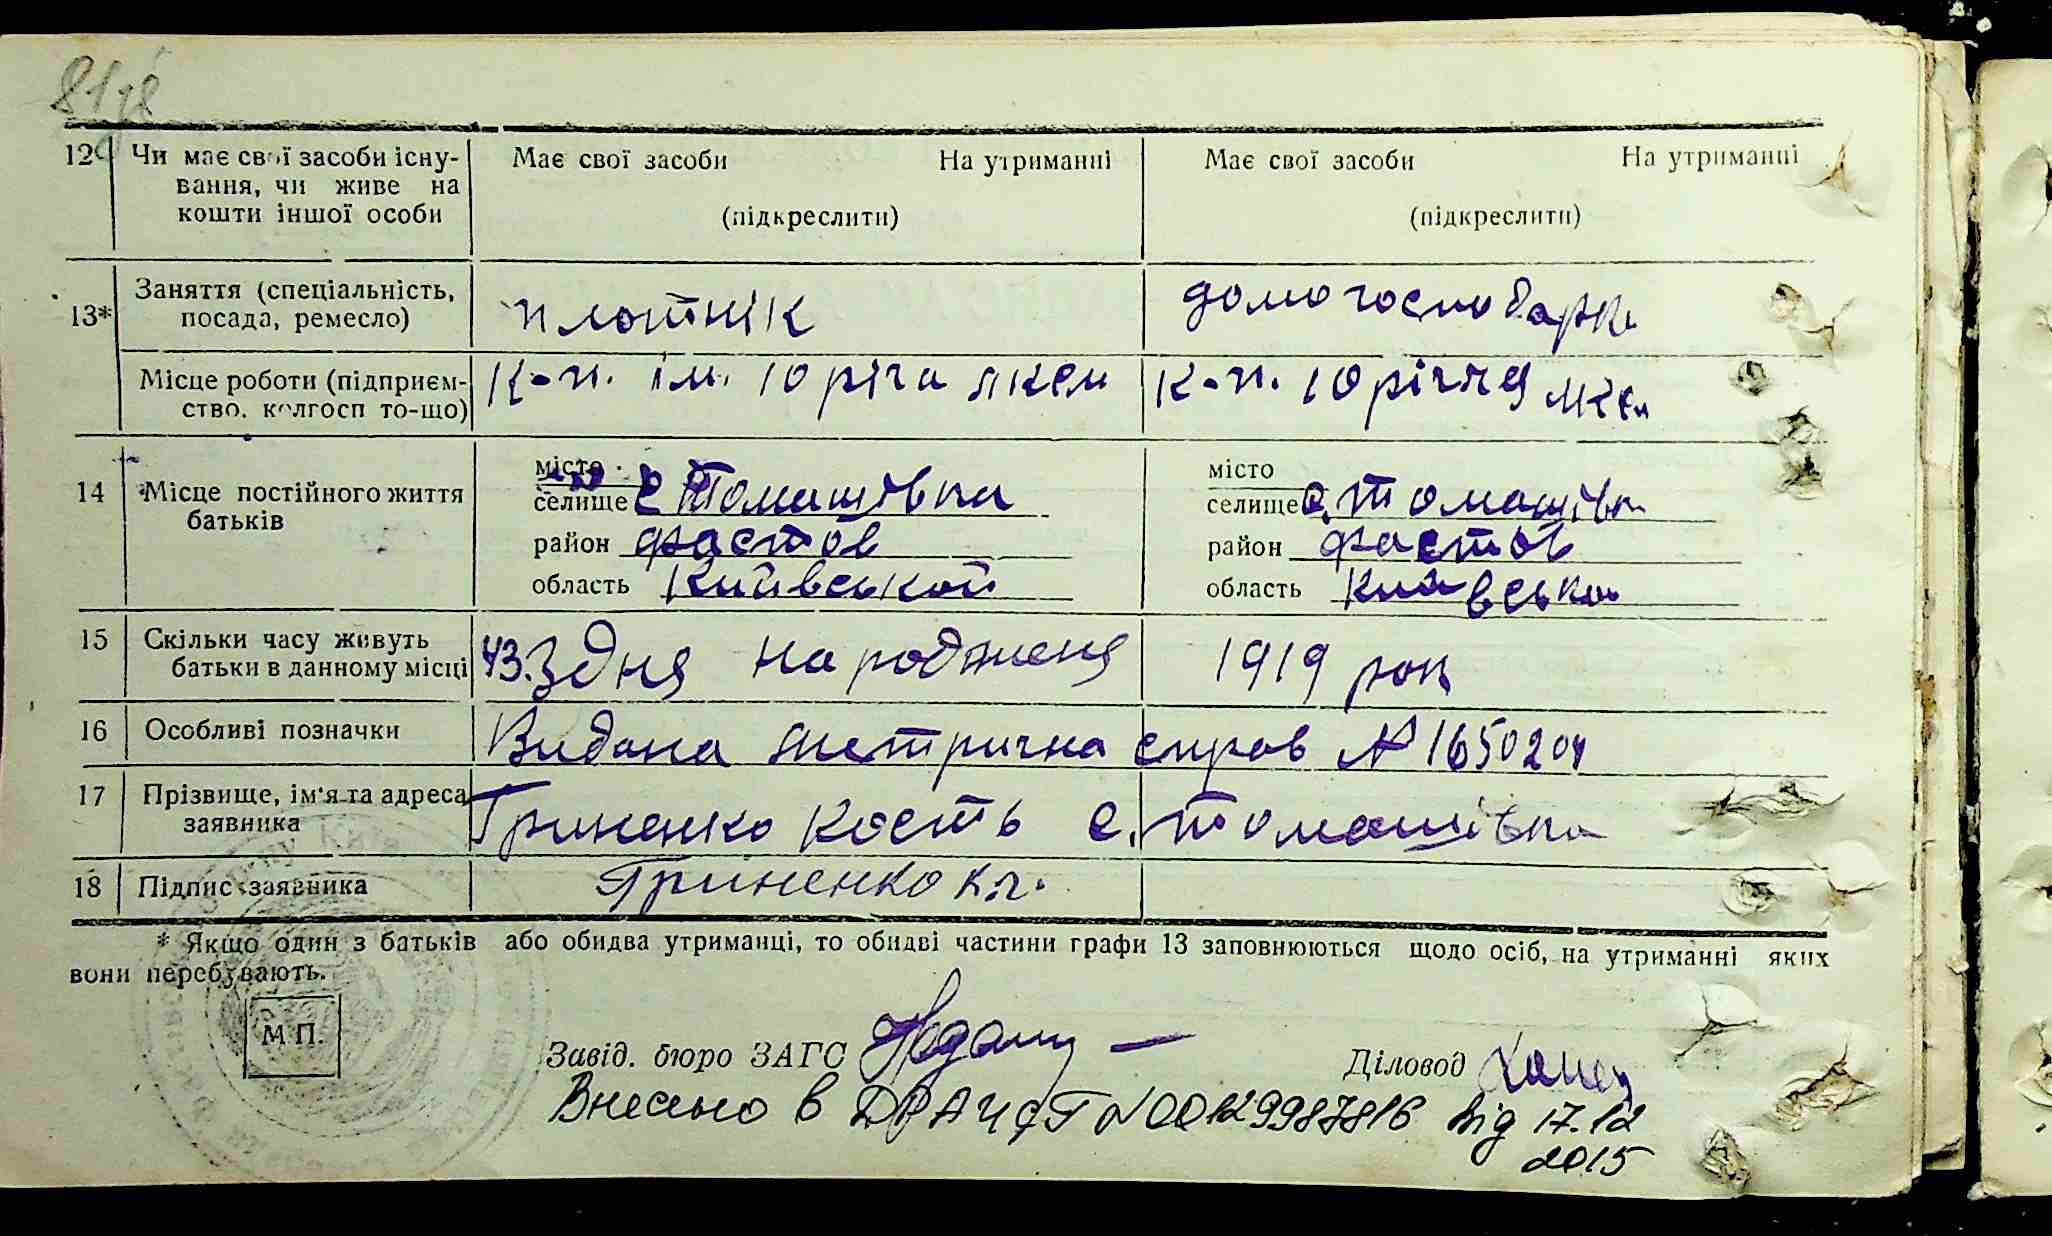 12 Чи має свої засоби існу- Має свої засоби На утриманні Має свої засоби На утриманні
вання, чи живе на
кошти іншої особи (підкреслити) (підкреслити)
13* Заняття (спеціальність, плотнік домогосподарк
посада, ремесло)
Місце роботи (підприєм- К-п. ім. 10 річа лксм К-п. 10 річчя лксм
ство, колгосп то-що)
14 Місце постійного життя місто місто
батьків селище с Томашівка селище с. Томашівк
район фастов район фастов
область Київської область
15 Скільки часу живуть дня народженя 1919 рок
батьки в данному місці
16 Особливі позначки Видана метрична справ № 1650204
17 Прізвище, ім'я та адреса Гриненко Кость с. Томашівка
заявника
18 Підпис заявника Гриненко к.
* Якщо один з батьків або обидва утриманці, то обидві частини графи 13 заповнюються щодо осіб, на утриманні яких
вони перебувають.
М П.
Завід. бюро ЗАГС Діловод
Внесено в ДРАЦСГ №00129987816 від 17.12
2015